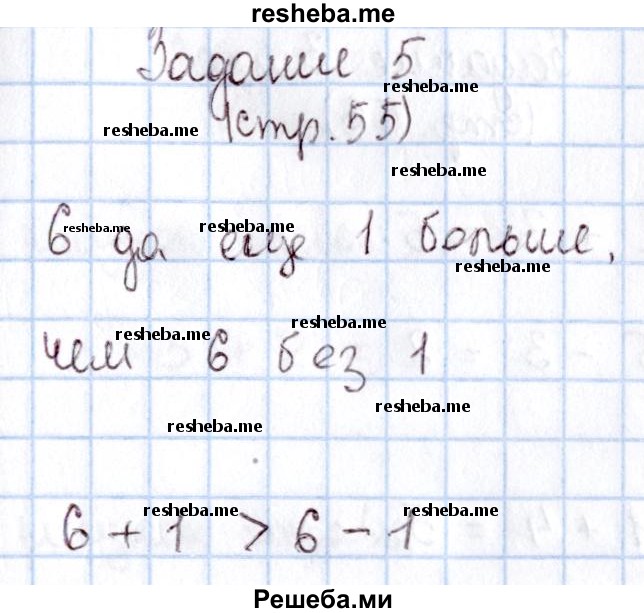 resheba.me
Задание 5
resheba.me
resheba.me (стр. 55)
resheba.me
6 да еще 1 больше,
resheba.me resheba.me
resheba.me
resheba.me
resheba.me
чем 6 без 1
resheba.me
resheba.me
resheba.me resheba.me
6 + 1 > 6 - 1
Решеба.ми